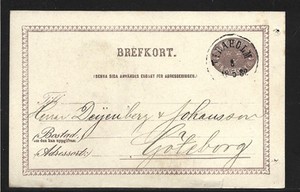 BREFKORT.
(DENNA SIDA ANVÄNDES ENDAST FÖR ADRESSERINGEN.)
Herrar Deijenberg & Johansson
Bostad,
om den kan uppgifvas
Adressort:
Göteborg